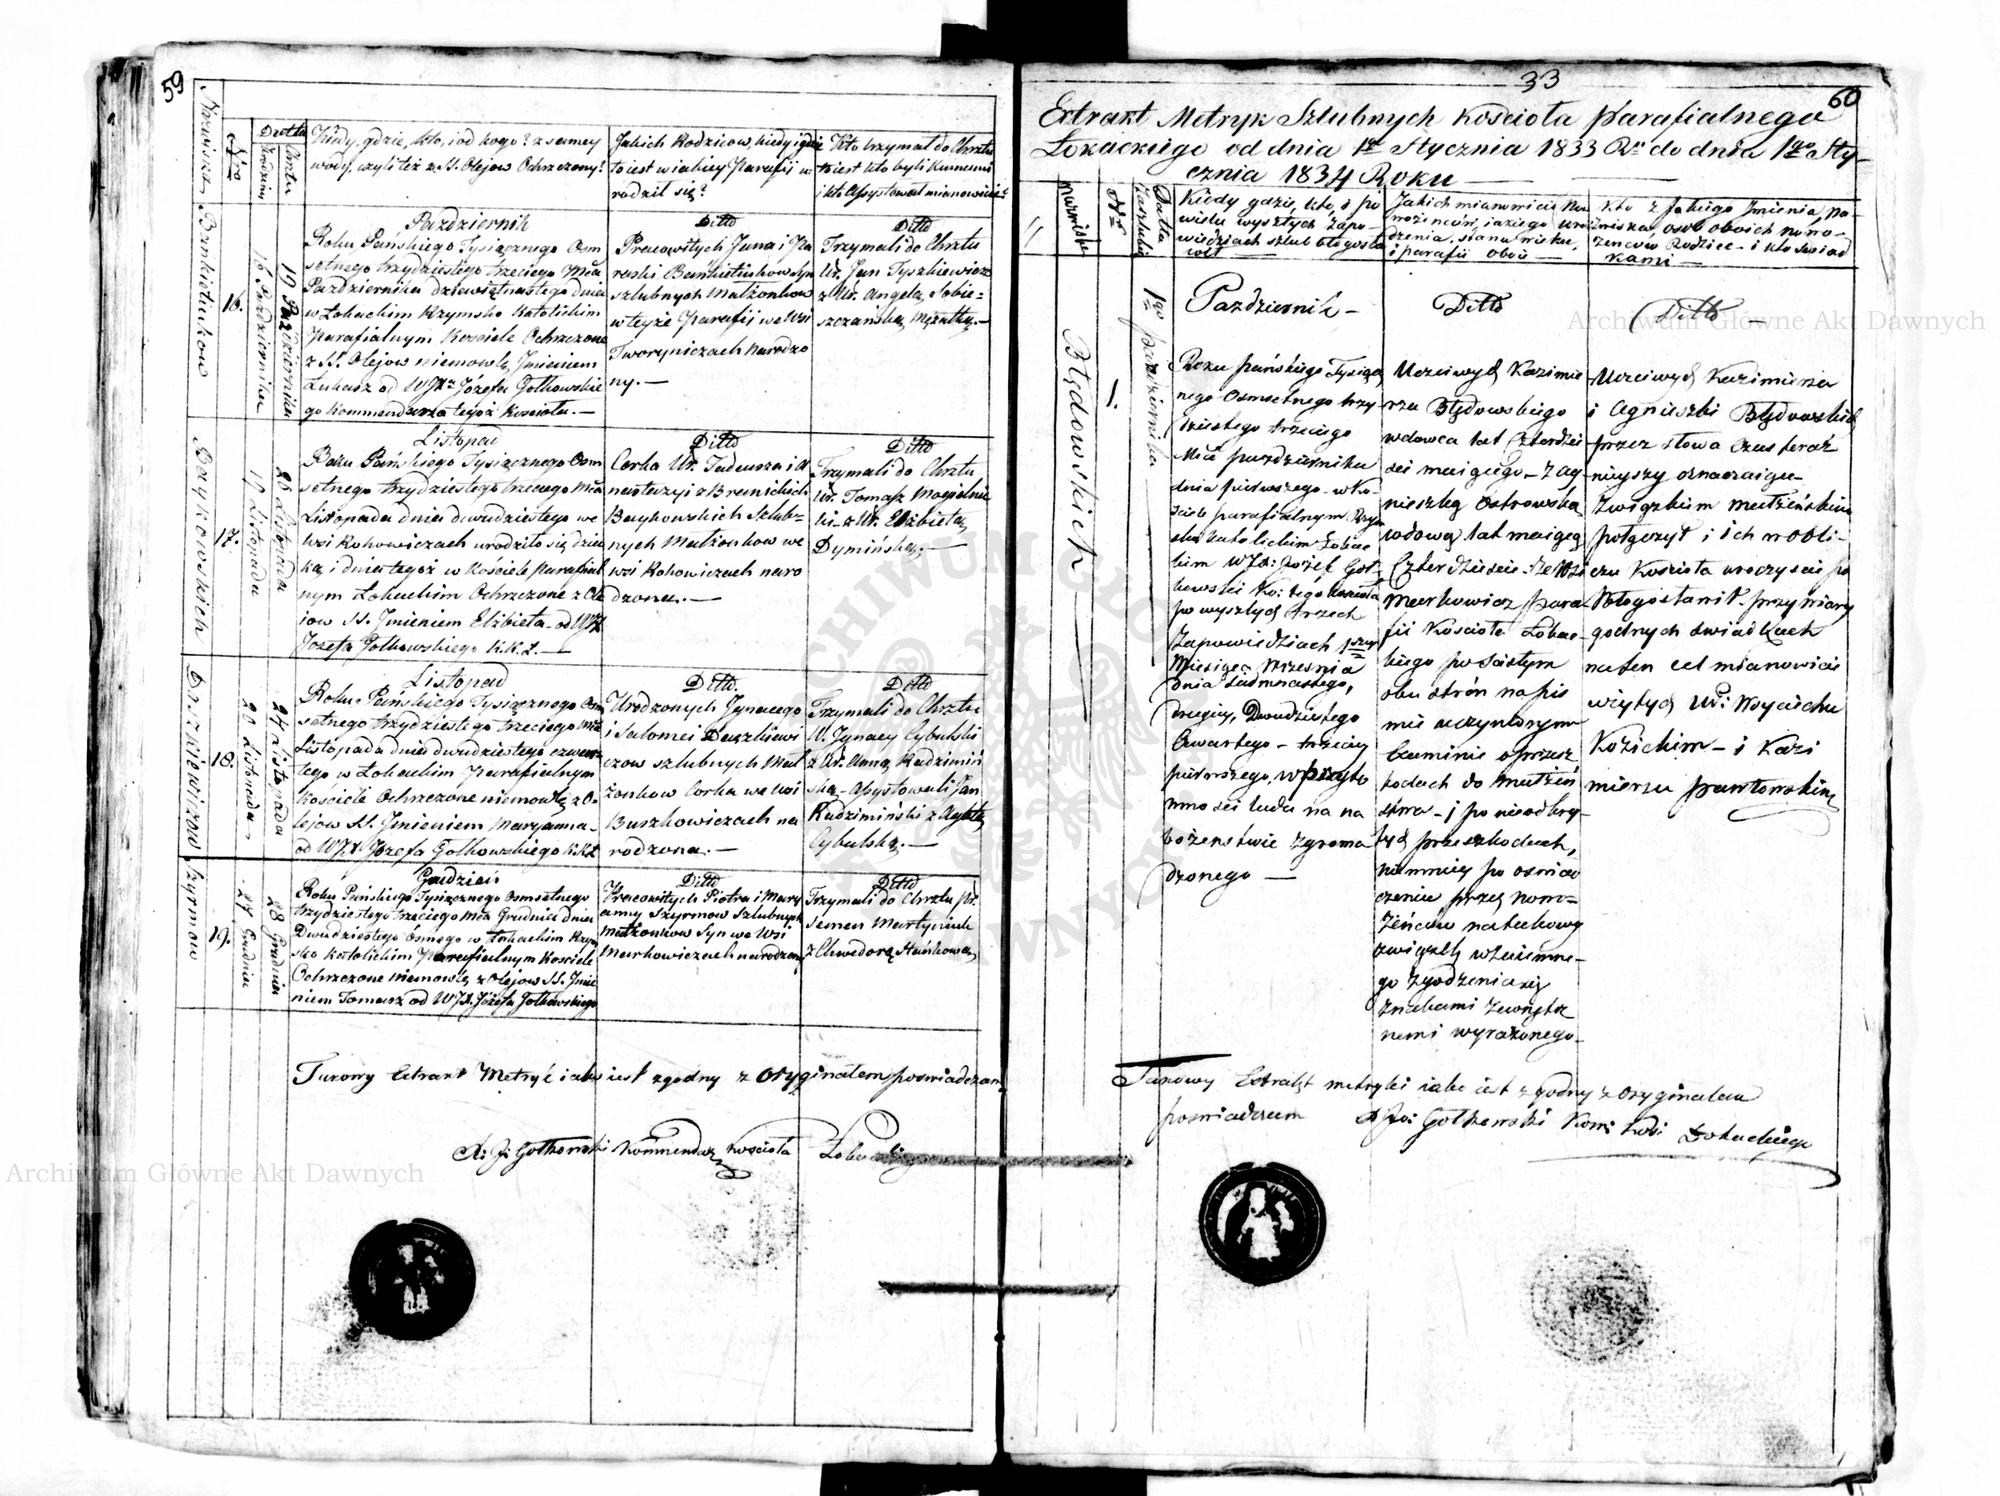 59
Nazwisko
Nro
Datta
Urodzin
Chrztu
Kiedy, gdzie, kto, i od kogo? z samey
wody, czyli też z SS. Olejow Ochrzczony?
Jakich Rodzicow, kiedy i gdzie
to iest w iakiey Parafii u-
rodził się?
Kto trzymał do Chrztu
to iest kto byli Kumami
i kto Assystował mianowicie?
Bankietiukow
16.
16 Pazdziernika
19 Pazdziernika
Pazdziernik
Roku Pańskiego Tysiącznego Osm
setnego trzydziestego trzeciego Mca
Pazdziernika dziewiętnastego dnia
w Łokackim Rzymsko Katolickim
Parafialnym Kosciele Ochrzczone
z SS. Olejow niemowlę Jmieniem
Łukasz od WJX Józefa Gołkowskie
go Kommendarza tegoż Koscioła.—
Ditto
Pracowitych Jana i Pa
raski Bankietiukow Syn
szlubnych Małżonkow
w teyże Parafij we Wsi
Tworyniczach narodzo
ny.—
Ditto
Trzymali do Chrztu
Ur. Jan Tyszkiewicz
z Ur. Angelą Sobie=
szczańską Mężatką.—
Baykowskich
17.
17 Listopada
20 Listopada
Listopad
Roku Pańskiego Tysiącznego Osm
setnego trzydziestego trzeciego Mca
Listopada dnia dwudziestego we
Wsi Kohowiczach urodziło się dziec
kę i dnia tegoż w Kosciele parafial
nym Łokackim Ochrzczone z Ole
jow SS. Jmieniem Elżbieta od WJX
Jozefa Gołkowskiego K.K.Ł.—
Ditto
Corka Ur. Tadeusza i A
nastazyi z Bronickich
Baykowskich Szlub-
nych Małżonkow we
wsi Kohowiczach naro
dzona.—
Ditto
Trzymali do Chrztu
Ur. Tomasz
ki z Ur. Elżbietą
Dymińską.—
Daszkiewiczow
18.
20 Listopada
24 Listopada
Listopad
Roku Pańskiego Tysiącznego Osm
setnego trzydziestego trzeciego Mca
Listopada dnia dwudziestego czwar
tego w Łokackim Parafialnym
Kosciele Ochrzczone niemowlę z O-
lejow SS. Jmieniem Maryanna-
od WJX. Józefa Gołkowskiego K.K.Ł.
Ditto.
Urodzonych Jgnacego
i Salomei Daszkiewi
czow szlubnych Mał
żonkow Corka we wsi
Buszkowiczach na
rodzona.—
Ditto
Trzymali do Chrztu
U. Jgnacy Cybulski
z Ur. Anną Radzimiń
ską- Assystowali Jan
Radzimiński z Agatą
Cybulską.—
Szyrmow
19.
27 Grudnia
28 Grudnia
Grudzień
Roku Pańskiego Tysiącznego Osmsetnego
trzydziestego trzeciego Mca Grudnia dnia
Dwudziestego ósmego w Łokackim Rzym
sko katolickim Parafialnym Kosciele
Ochrzczone niemowlę z Olejow SS. Jmie
niem Tomasz od WJX. Józefa Gołkowskiego
Ditto
Pracowitych Piotra i Mary
anny Szyrmow Szlubnych
Małżonkow Syn we Wsi
Markowiczach narodzony
Ditto
Trzymali do Chrztu Pr.
Semen Martyniuk
z Chwedorą Stańkową
Turowy Extrakt Metryk iako iest zgodny z Oryginałem poswiadczam
X. J. Gołkowski Kommendarz Kosciola
33
60
Extrakt Metryk Szlubnych Kościoła Parafialnego
Łokackiego od dnia 1go Stycznia 1833 Ru do dnia 1go Sty-
cznia 1834 Roku
Nazwisko
Nro
Datta
Zaszlubin
Kiedy gdzie, kto, i po
wielu wyszłych Zapo-
wiedziach szlub błogosła
wił
Jakich mianowicie No
wożencow, jakiego uro
dzenia, stanu wieku,
i parafii oboie
Kto z Jakiego Jmienia, na-
zwiska osob oboich nowo-
żencow Rodzice- i kto swiad
kami
Błędowskich
1.
1go pazdziernika
Pazdziernik-
Roku pańskiego Tysiąc
nego Osmsetnego trzy
dziestego trzeciego
Mca pazdziernika
dnia pierwszego w Ko-
sciele parafialnym Rzym
sko katolickim Łokac
kim WJX: Jozef Goł
kowski Ko: tego Koscioła
po wyszłych trzech
Zapowiedziach
Miesiąca Wrzesnia
dnia siedmnastego,
drugiey, Dwudziestego
Czwartego- trzeciey
pierwszego, w przyto
mnosci ludu na na
bożenstwie Zgroma
dzonego
Ditto
Uczciwych Kazimie
rza Błędowskiego
wdowca lat Czterdzie
sci maiącego- z Ag
nieszką Ostrowską
wdową lat maiącą
Czterdziescie- ze Wsi
Markowicz para
fii Kościoła Łokac-
kiego po scisłym
obu strón na pis
mie uczynionym
Examinie o przesz
kodach do małżeń
stwa- i po nieodkry-
tych przeszkodach,
niemniey po oswiad
czeniu przez nowo-
żeńców na takowy
związek wzaiemne-
go zgodzenia się
znakami zewnętrz
nemi wyrażonego-
Ditto
Uczciwych Kazimierza
i Agnieszki Błędowskich
przez słowa Czas teraz
nieyszy oznaczaiące
Związkiem małżeńskim
połączył i ich w obli-
czu Koscioła uroczyscie po
błogosławił- przy wiary
godnych swiadkach
na ten cel mianowicie
wzytych Ur: Woyciechu
Kozickim- i Kazi
mierzu Pawłowskim
Turowy Extrakt metryki iako iest zgodny z Oryginałem
poswiadczam
X Joz: Gołkowski Kom: Kosci Łokackiego
Archiwum Główne Akt Dawnych
Archiwum Główne Akt Dawnych